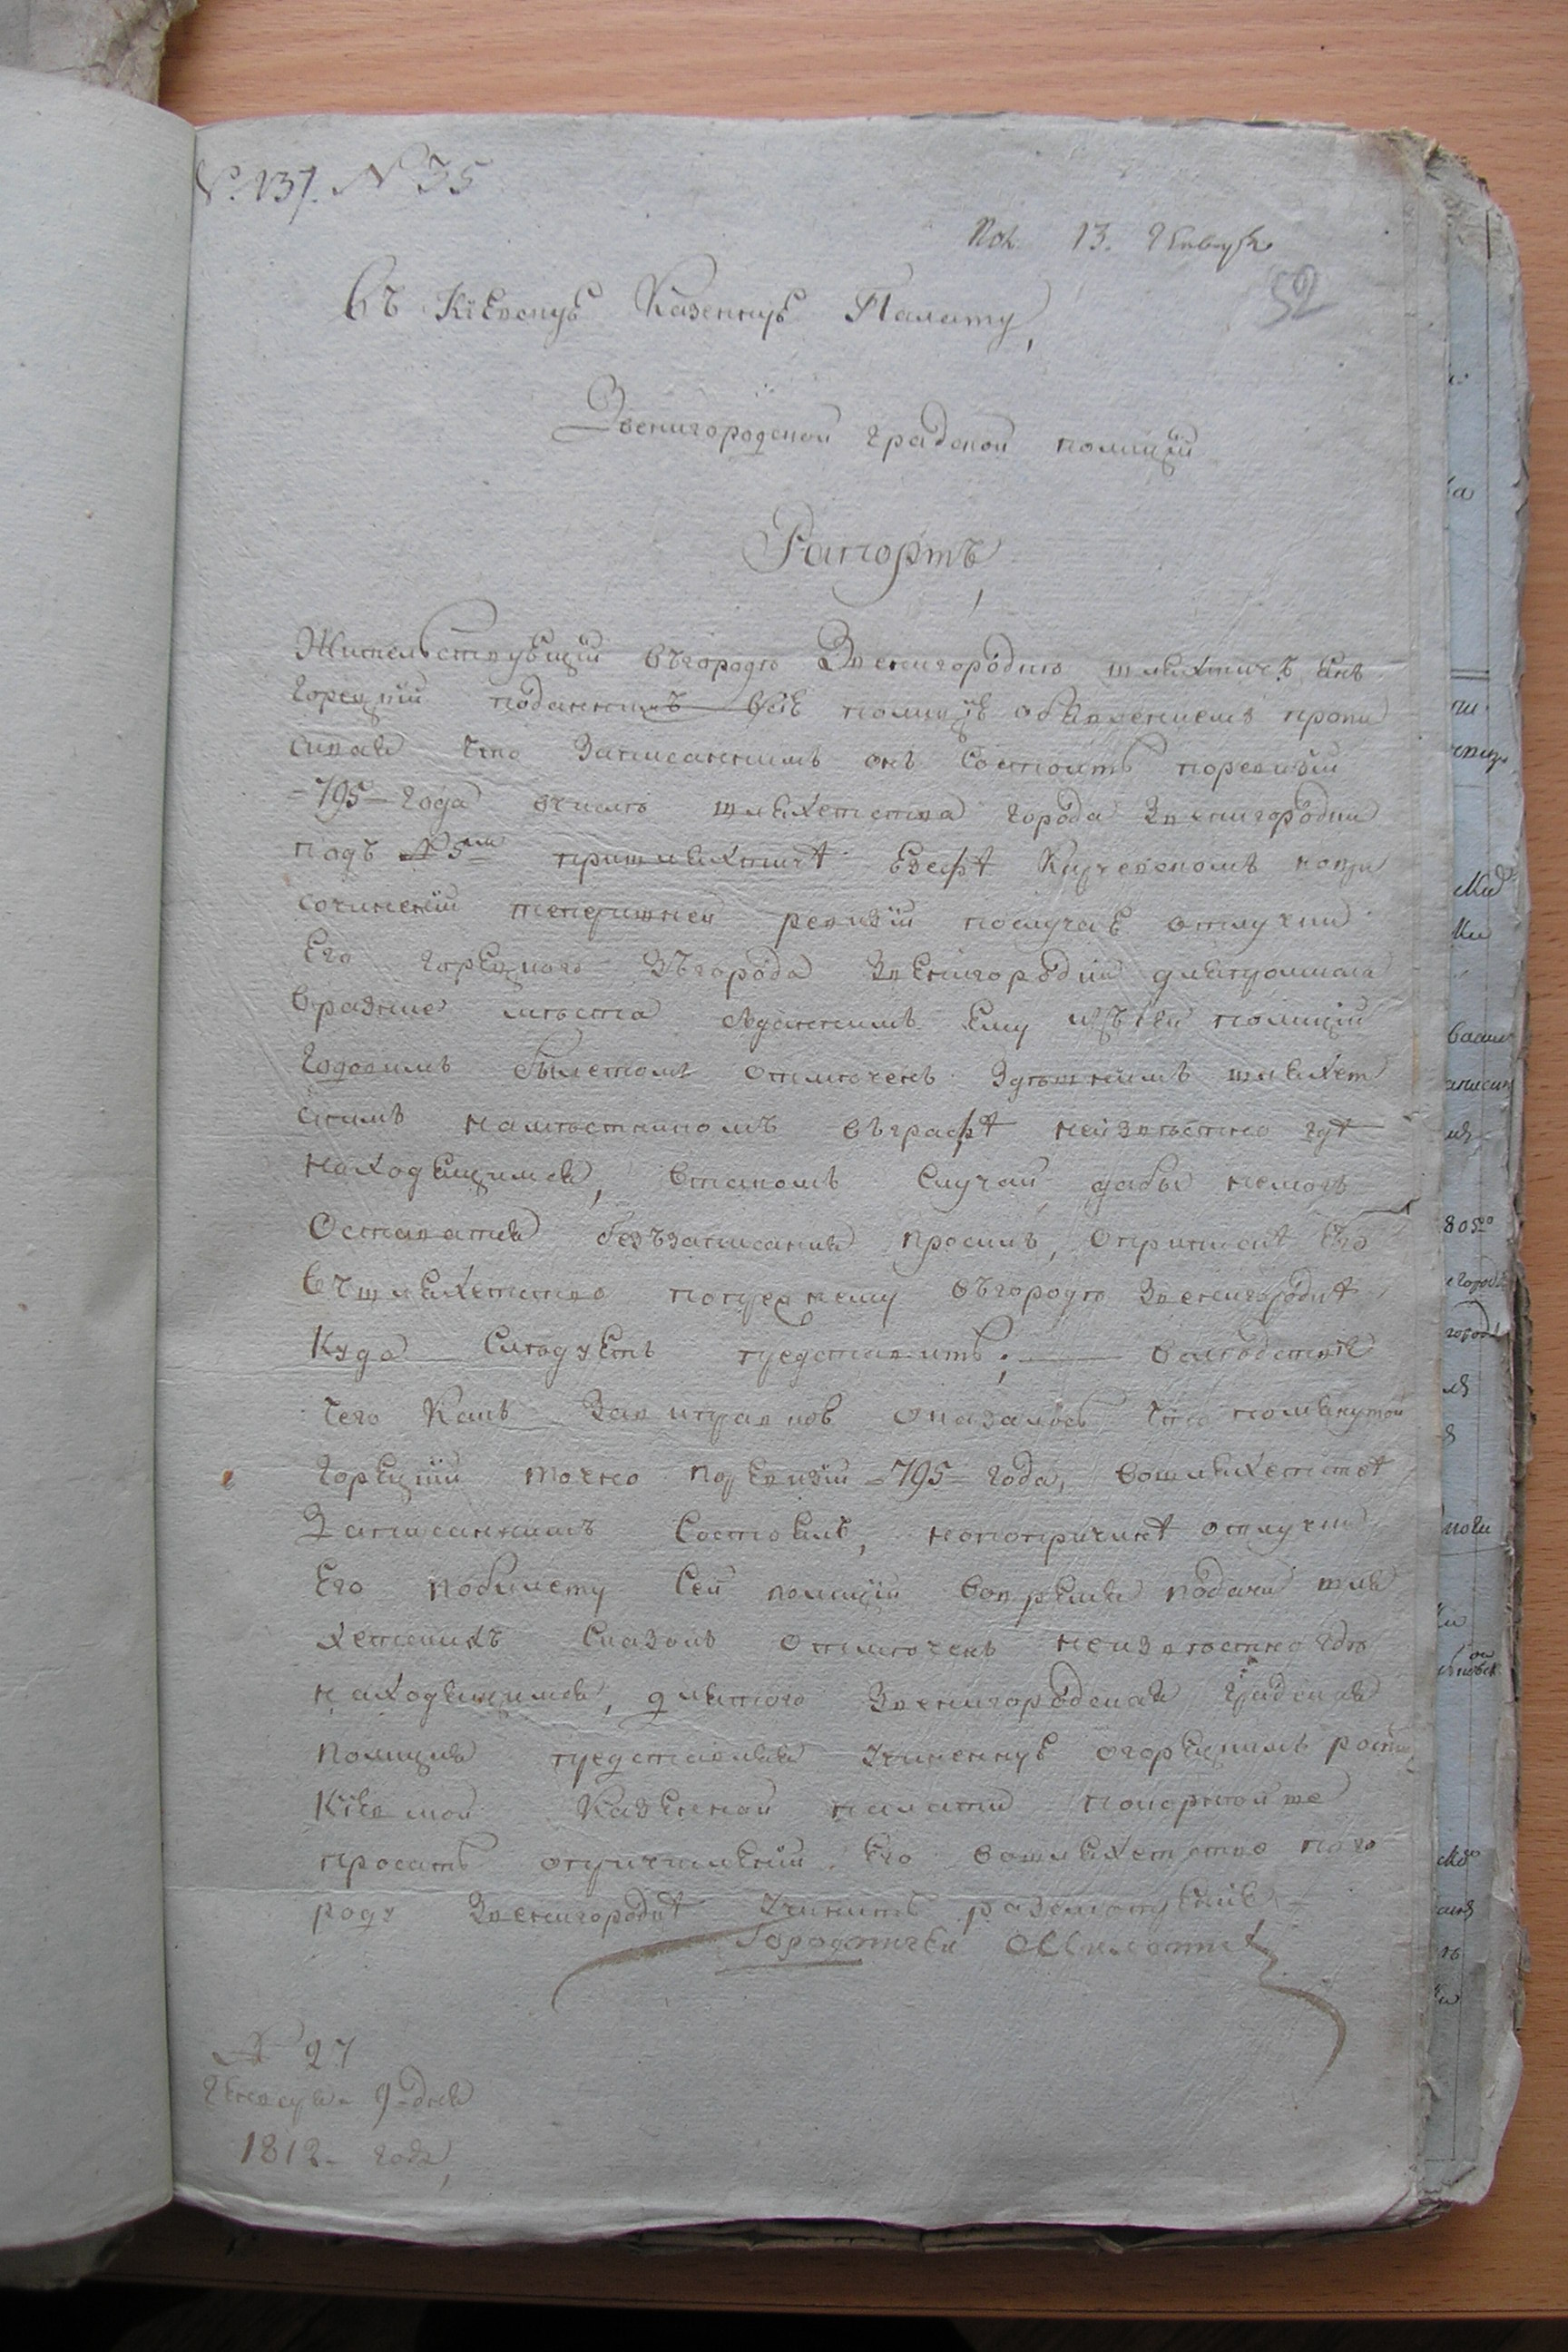 № 137. № 35
Пол. 13. Генваря
52
Въ Кіевскую Казенную Палату,
Звенигородской градской полиціи
Рапортъ,
Жительствующій въгородѣ Звенигородкѣ шляхтичъ Янъ
Горецкій поданнымъ въсію полицію объявленіемъ пропи
сивая что Записаннымъ онъ Состоитъ поревизіи
-795- года вчислѣ шляхетства города Звенигородки
подъ № 5мъ пришляхтичѣ Езефѣ
сочиненіи теперишней ревизіи послучаю отлучки
Его Горецкого Зъгорода Звенигородки
вразніе мѣста Зданнимъ Ему изъсей полиціи
Годовимъ билетомъ отмѣченъ Здѣшнимъ шляхет
скимъ намѣстникомъ въграфѣ неизвѣстно гдѣ
находящимся, втакомъ Случаи дабы немогъ
Оставатся безъзаписанія просилъ, опричислѣ Его
въшляхетство попрежнему въгородѣ Звенигородкѣ
Куда Слѣдуетъ представить; — вслѣдствіе
чего Какъ Зап оказалось что помянутой
Горецкій точно поревизіи -795- года, вошляхетствѣ
Записаннимъ Состоялъ, нопопричинѣ отлучки
Его побилету Сей полиціи вовремя подачи шля
хетскихъ Сказокъ отмѣченъ неизвѣстно гдѣ
находящимся, длятого Звенигородская Градская
полиція представляя Учиненную огорецкимъ
Кіевской Казенной палати покорнѣйше
просить опричисленіи Его вошляхетство пого
роду Звенигородкѣ Учинить разсмотреніе, -
Городничій
№ 27
Генваря 9 дня
1812- года,